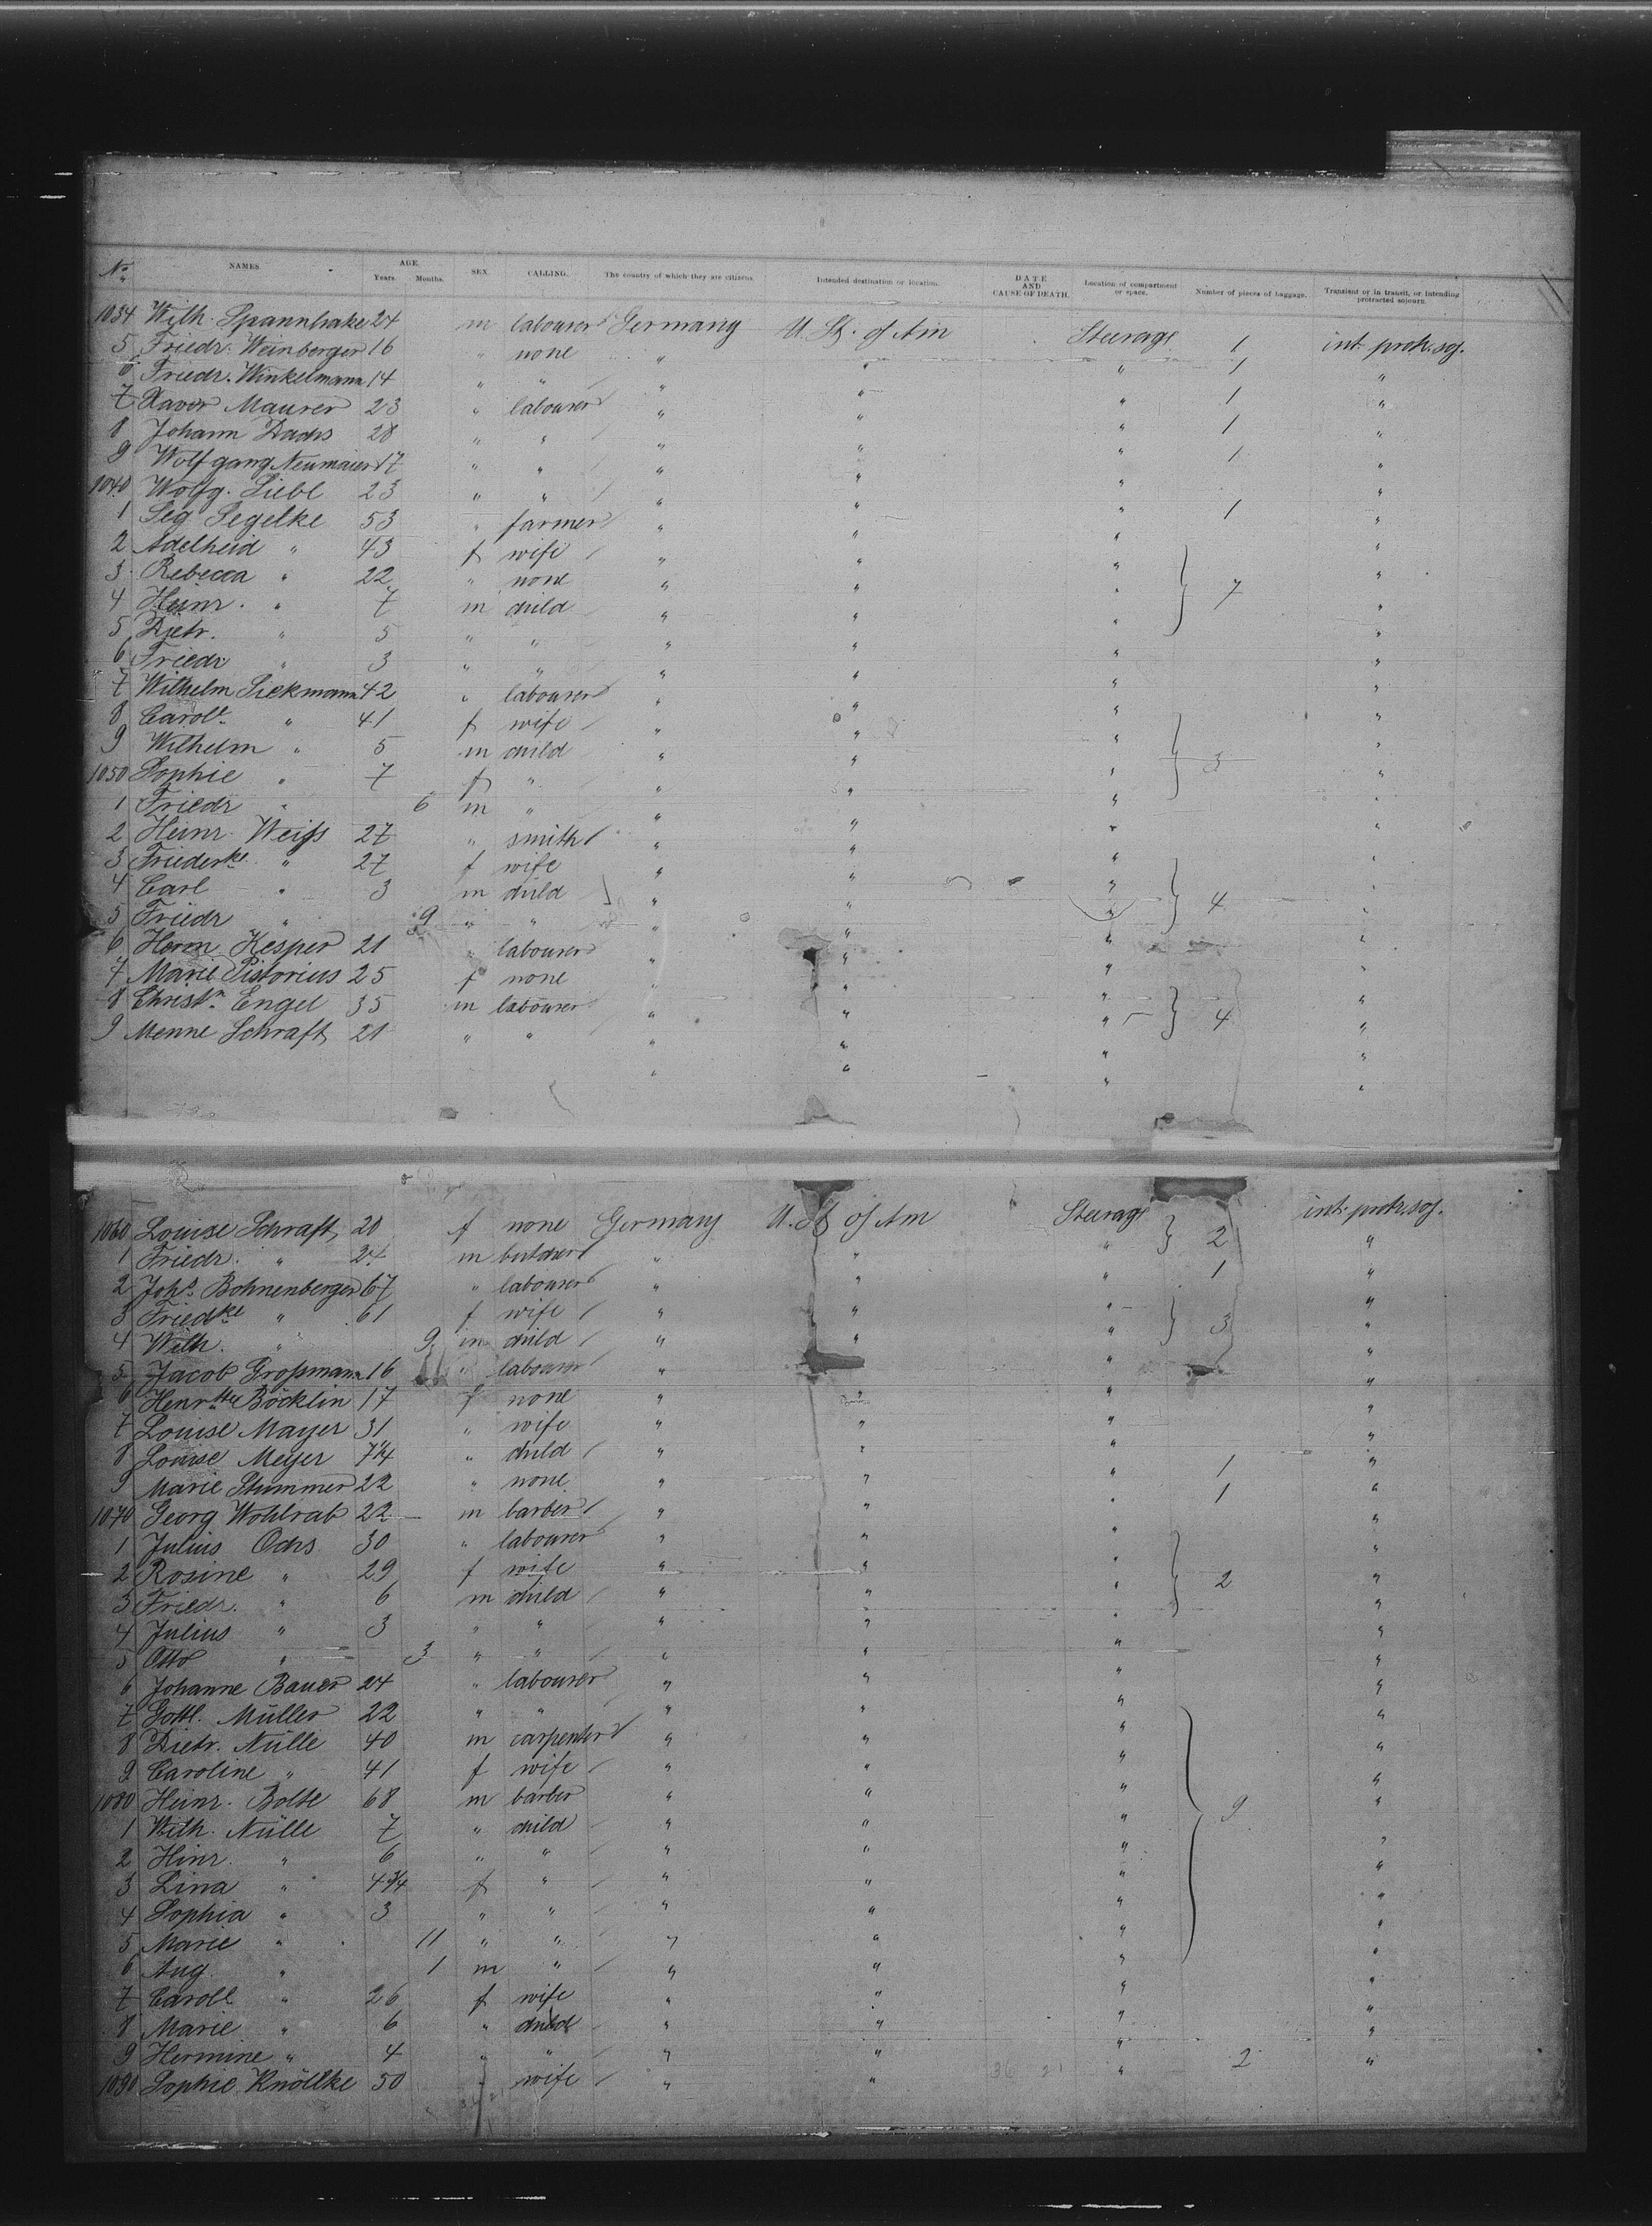 No. NAMES. AGE. Years. Months. SEX. CALLING. The country of which they are citizens. Intended destination or location. DATE AND CAUSE OF DEATH. Location of compartment or space. Number of pieces of baggage. Transient or in transit, or intending protracted sojourn.
1034 Wilh. Spannhake 24 m labourer Germany U. St. of Am Steerage 1 int. protr. soj.
5 Friedr. Weinberger 16 " none " " " 1 "
6 Friedr. Winkelmann 14 " " " " " 1 "
7 Xaver Maurer 23 " labourer " " " 1 "
8 Johann Dachs 28 " " " " " 1 "
9 Wolfgang Neumaier 17 " " " " " "
1040 Wolfg. Liebl 23 " " " " " 1 "
1 Seg Segelke 53 " farmer " " " "
2 Adelheid " 43 f wife " " " "
3 Rebecca " 22 " none " " " 7 "
4 Heinr. " 7 m child " " " "
5 Dietr. " 5 " " " " " "
6 Friedr " 3 " " " " " "
7 Wilhelm Siekmann 42 " labourer " " " "
8 Carolt. " 41 f wife " " " "
9 Wilhelm " 5 m child " " " 3 "
1050 Sophie " 7 f " " " " "
1 Friedr " 6 m " " " " "
2 Heinr. Weifs 27 " smith " " " "
3 Friederke " 27 f wife " " " "
4 Carl " 3 m child " " " 4 "
5 Friedr " 9 " " " " " "
6 Herm. Kesper 21 " labourer " " " "
7 Marie Pistorius 25 f none " " " "
8 Christn. Engel 35 m labourer " " " 4 "
9 Menne Schraft 21 " " " " " "
1060 Louise Schraft 20 f none Germany U. St of Am Steerage 2 int. protr. soj.
1 Friedr. " 24 m butcher " " " "
2 Johs. Bohnenberger 67 " labourer " " " 1 "
3 Friedke " 61 f wife " " " "
4 Wilh. " 9 m child " " " 3 "
5 Jacob Großmann 16 " labourer " " " "
6 Henrtte Böcklin 17 f none " " " "
7 Louise Mayer 31 " wife " " " "
8 Louise Meyer 7¼ " child " " " 1 "
9 Marie Stummer 22 " none " " " 1 "
1070 Georg Wohlrab 22 m barber " " " "
1 Julius Ochs 30 " labourer " " " "
2 Rosine " 29 f wife " " " 2 "
3 Friedr. " 6 m child " " " "
4 Julius " 3 " " " " " "
5 Otto " 3 " " " " " "
6 Johanne Bauer 24 " labourer " " " "
7 Gottl. Müller 22 " " " " " "
8 Dietr. Nülle 40 m carpenter " " " "
9 Caroline " 41 f wife " " " "
1080 Heinr. Bolte 68 m barber " " " 9 "
1 Wilh. Nülle 7 " child " " " "
2 Hinr. " 6 " " " " " "
3 Lina " 4¾ f " " " " "
4 Sophia " 3 " " " " " "
5 Marie " 11 " " " " " "
6 Aug. " 1 m " " " " "
7 Carole " 26 f wife " " " "
8 Marie " 6 " child " " " "
9 Hermine " 4 " " " " " "
1090 Sophie Knöllke 50 " wife " " " 2 "